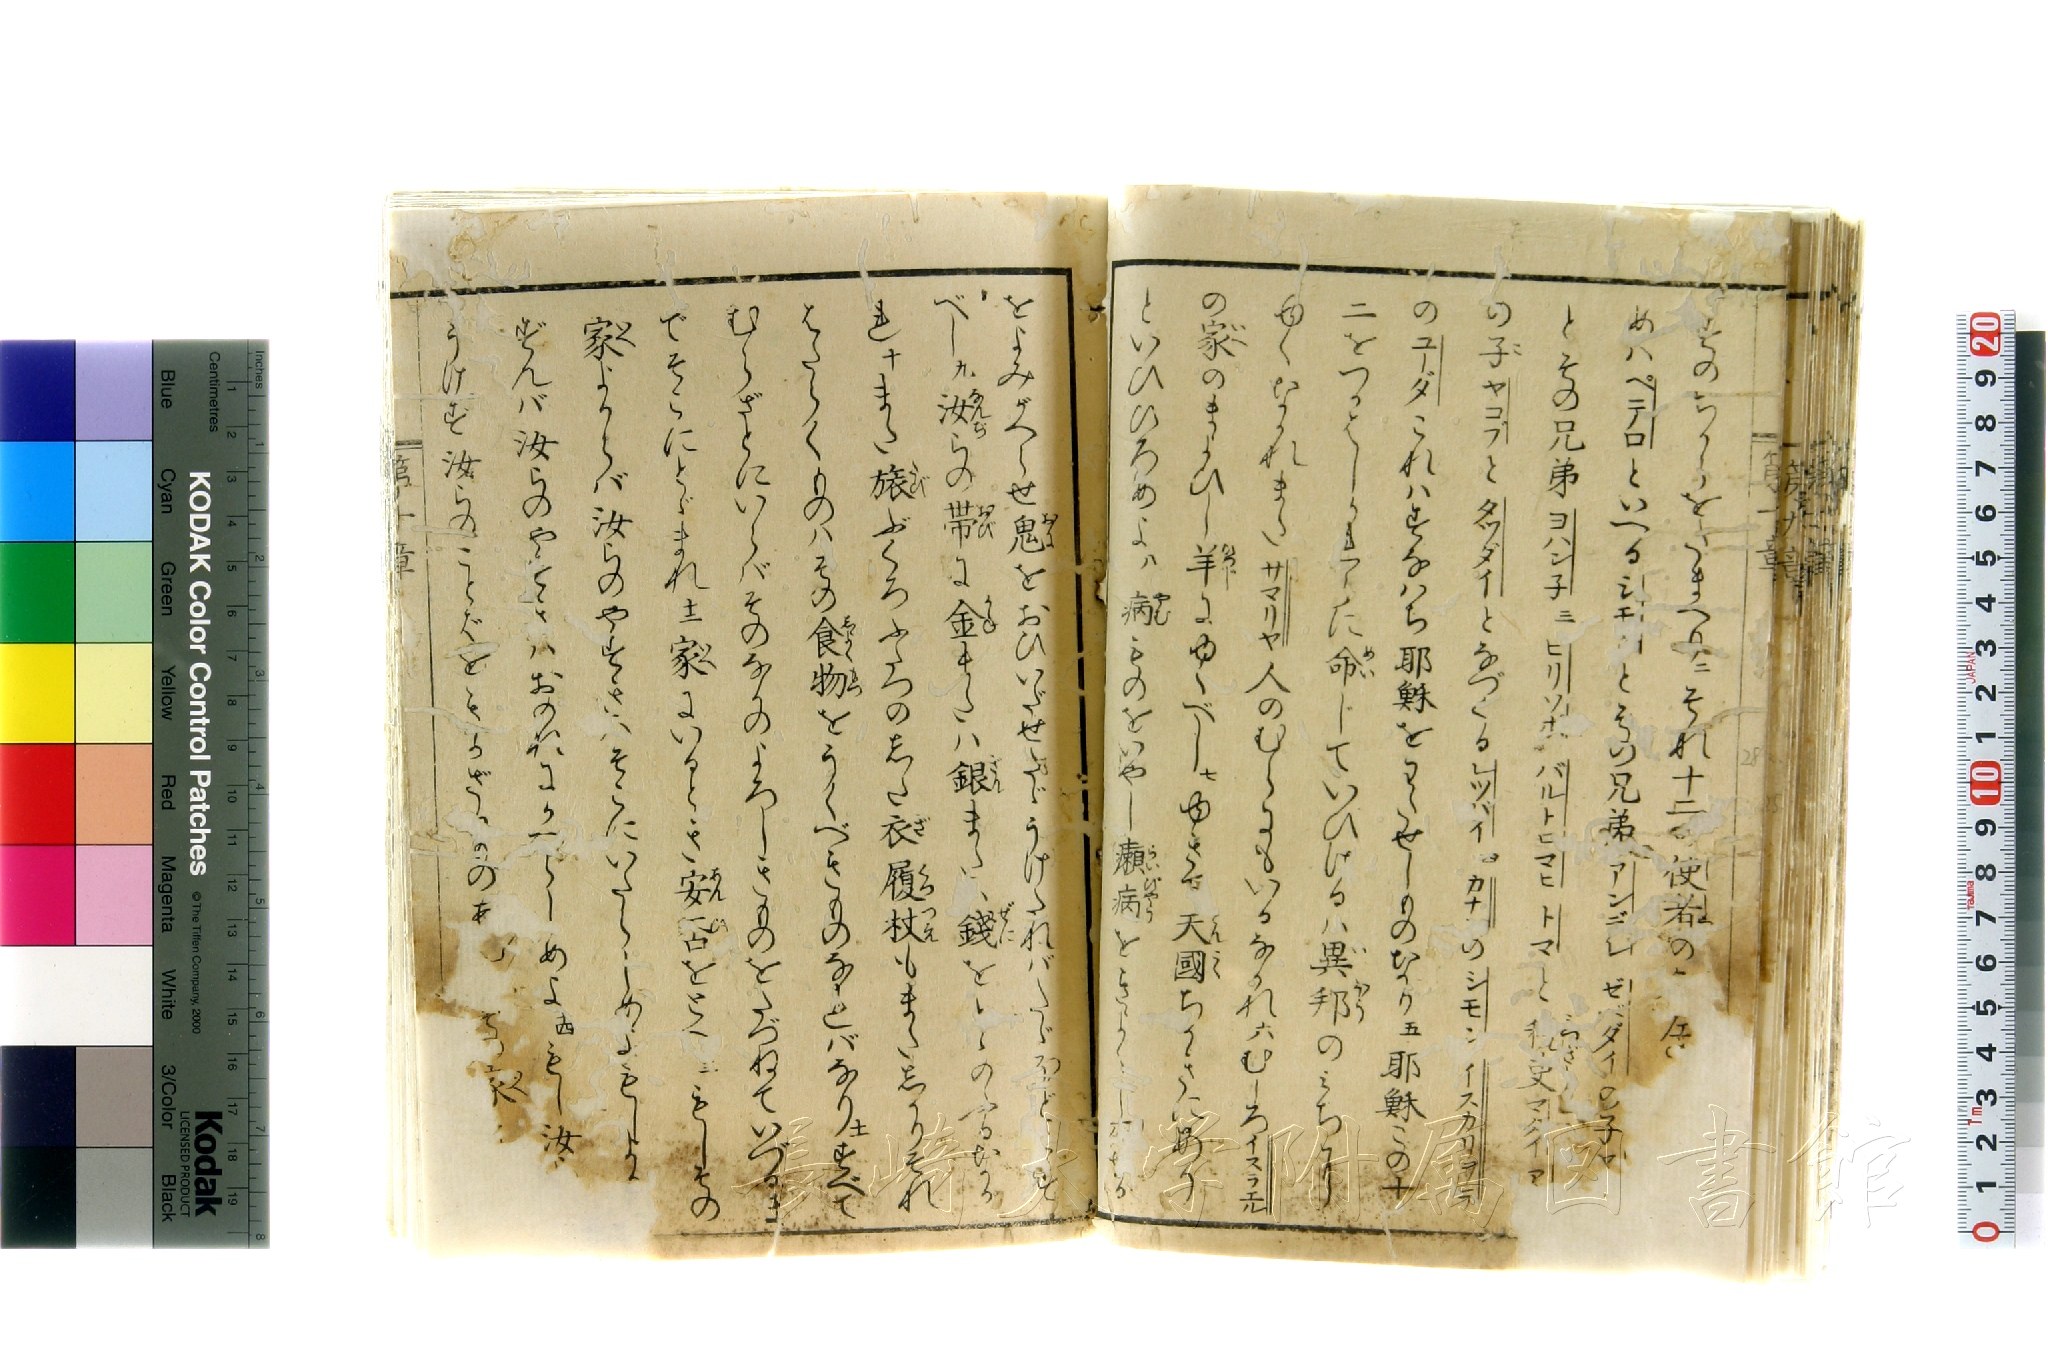 すのちからをたまへり二それ十二の使者の
めハペテロといへるシモンとその兄弟アンデレ ゼベダイの子ヤ
とその兄弟ヨハン子三ヒリツポ バルトロマヒ トマと税吏マタイ ア
の子ヤコブとタツダイとなづくるレツバイ四カナンのシモン イスカリヲテ
のユーダこれハすなはち耶穌をわたせしものなり五耶穌この十
二をつかはしかれらに命じていひけるハ異邦のみちに
ゆくなかれまたサマリヤ人のむらにもいるなかれ六むしろイスラエル
の家のまよひし羊にゆくべし七ゆきて天國ちかきにあり
といひひろめよ八病ものをいやし癩病をきよくし死せる
をよみがへらせ鬼をおひいだせたゞうけたれバたゞほどこす
べし九汝らの帯に金またハ銀またハ錢をとゝのふるなか
れ十また旅ぶくろふたつのした衣履杖もまたしかりそれ
はたらくものハその食物をうくべきものなれバなり十一すべて
むらざとにいらバそのなかのよろしきものをたづねていづるま
でそこにとゞまれ十二家にいるとき安否をとへ十三もしその
家よからバ汝らのやすきハそこにいたらしめよもしよか
ずんバ汝らのやすきハおのれにかへらしめよ十四もし汝
うけず汝らのことばをきかざるもの
第十章
長崎大学附属図書館
KODAK Color Control Patches
© The Tiffen Company, 2000
Kodak
LICENSED PRODUCT
Inches
Centimetres
Blue
Cyan
Green
Yellow
Red
Magenta
White
3/Color
Black
1 2 3 4 5 6 7 8 9 10 11 12 13 14 15 16 17 18 19
1 2 3 4 5 6 7 8
20 9 8 7 6 5 4 3 2 1 10 9 8 7 6 5 4 3 2 1 0
JAPAN